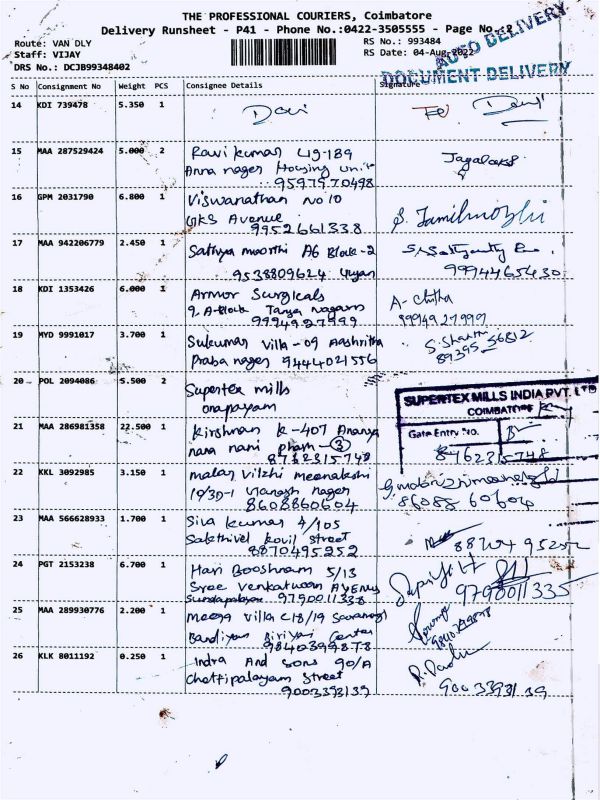 THE PROFESSIONAL COURIERS, Coimbatore
Delivery Runsheet - P41 - Phone No.:0422-3505555 - Page No.:2
Route: VAN DLY
Staff: VIJAY
DRS No.: DCJB99348402
RS No.: 993484
RS Date: 04-Aug-2022
AUTO DELIVERY
DOCUMENT DELIVERY
S No Consignment No Weight PCS Consignee Details Signature
14 KDI 739478 5.350 1
15 MAA 287529424 5.000 2 Ravi kumar 49-189
Anna nagar Housing unit
9597970498
16 GPM 2031790 6.800 1 Viswanathan No 10
GKS Avenue S. Tamilmozhi
9952661338
17 MAA 942206779 2.450 1 Sathya moorthi A6 Block-2
9538809624 9994465430
18 KDI 1353426 6.000 1 Armor Surgicals A- Chitha
9, A-Block Tanya nagaram 9994927999
9994927999
19 MYD 9991017 3.700 1 Sukumar villa-09 Aashritha S. Shanthi
Praba nager 9444021556 89395 56812
20 POL 2094086 5.500 2 Supertex mills
onapayam
SUPERTEX MILLS INDIA PVT. LTD
COIMBATORE
Gate Entry No.
21 MAA 286981358 22.500 1 Kirshnan K-407 Ananya
nana nani pham-3
8762315748 8762315748
22 KKL 3092985 3.150 1 malar vilzhi meenakshi
19/3D-1 nager
8608860604 86088 60604
23 MAA 566628933 1.700 1 Siva kumar 4/105
Sakthivel Kovil street
8870495252 88704 95252
24 PGT 2153238 6.700 1 Hari Booshnam 5/13
Sree Venkatwaan AVENUE
9790011338 9790011335
25 MAA 289930776 2.200 1 meega villa C18/19
Bandiyan Biriyani Center
9840399878 9840399878
26 KLK 8011192 0.250 1 Indra And Sons 90/A
Chettipalayam Street
9003393139 9003393139